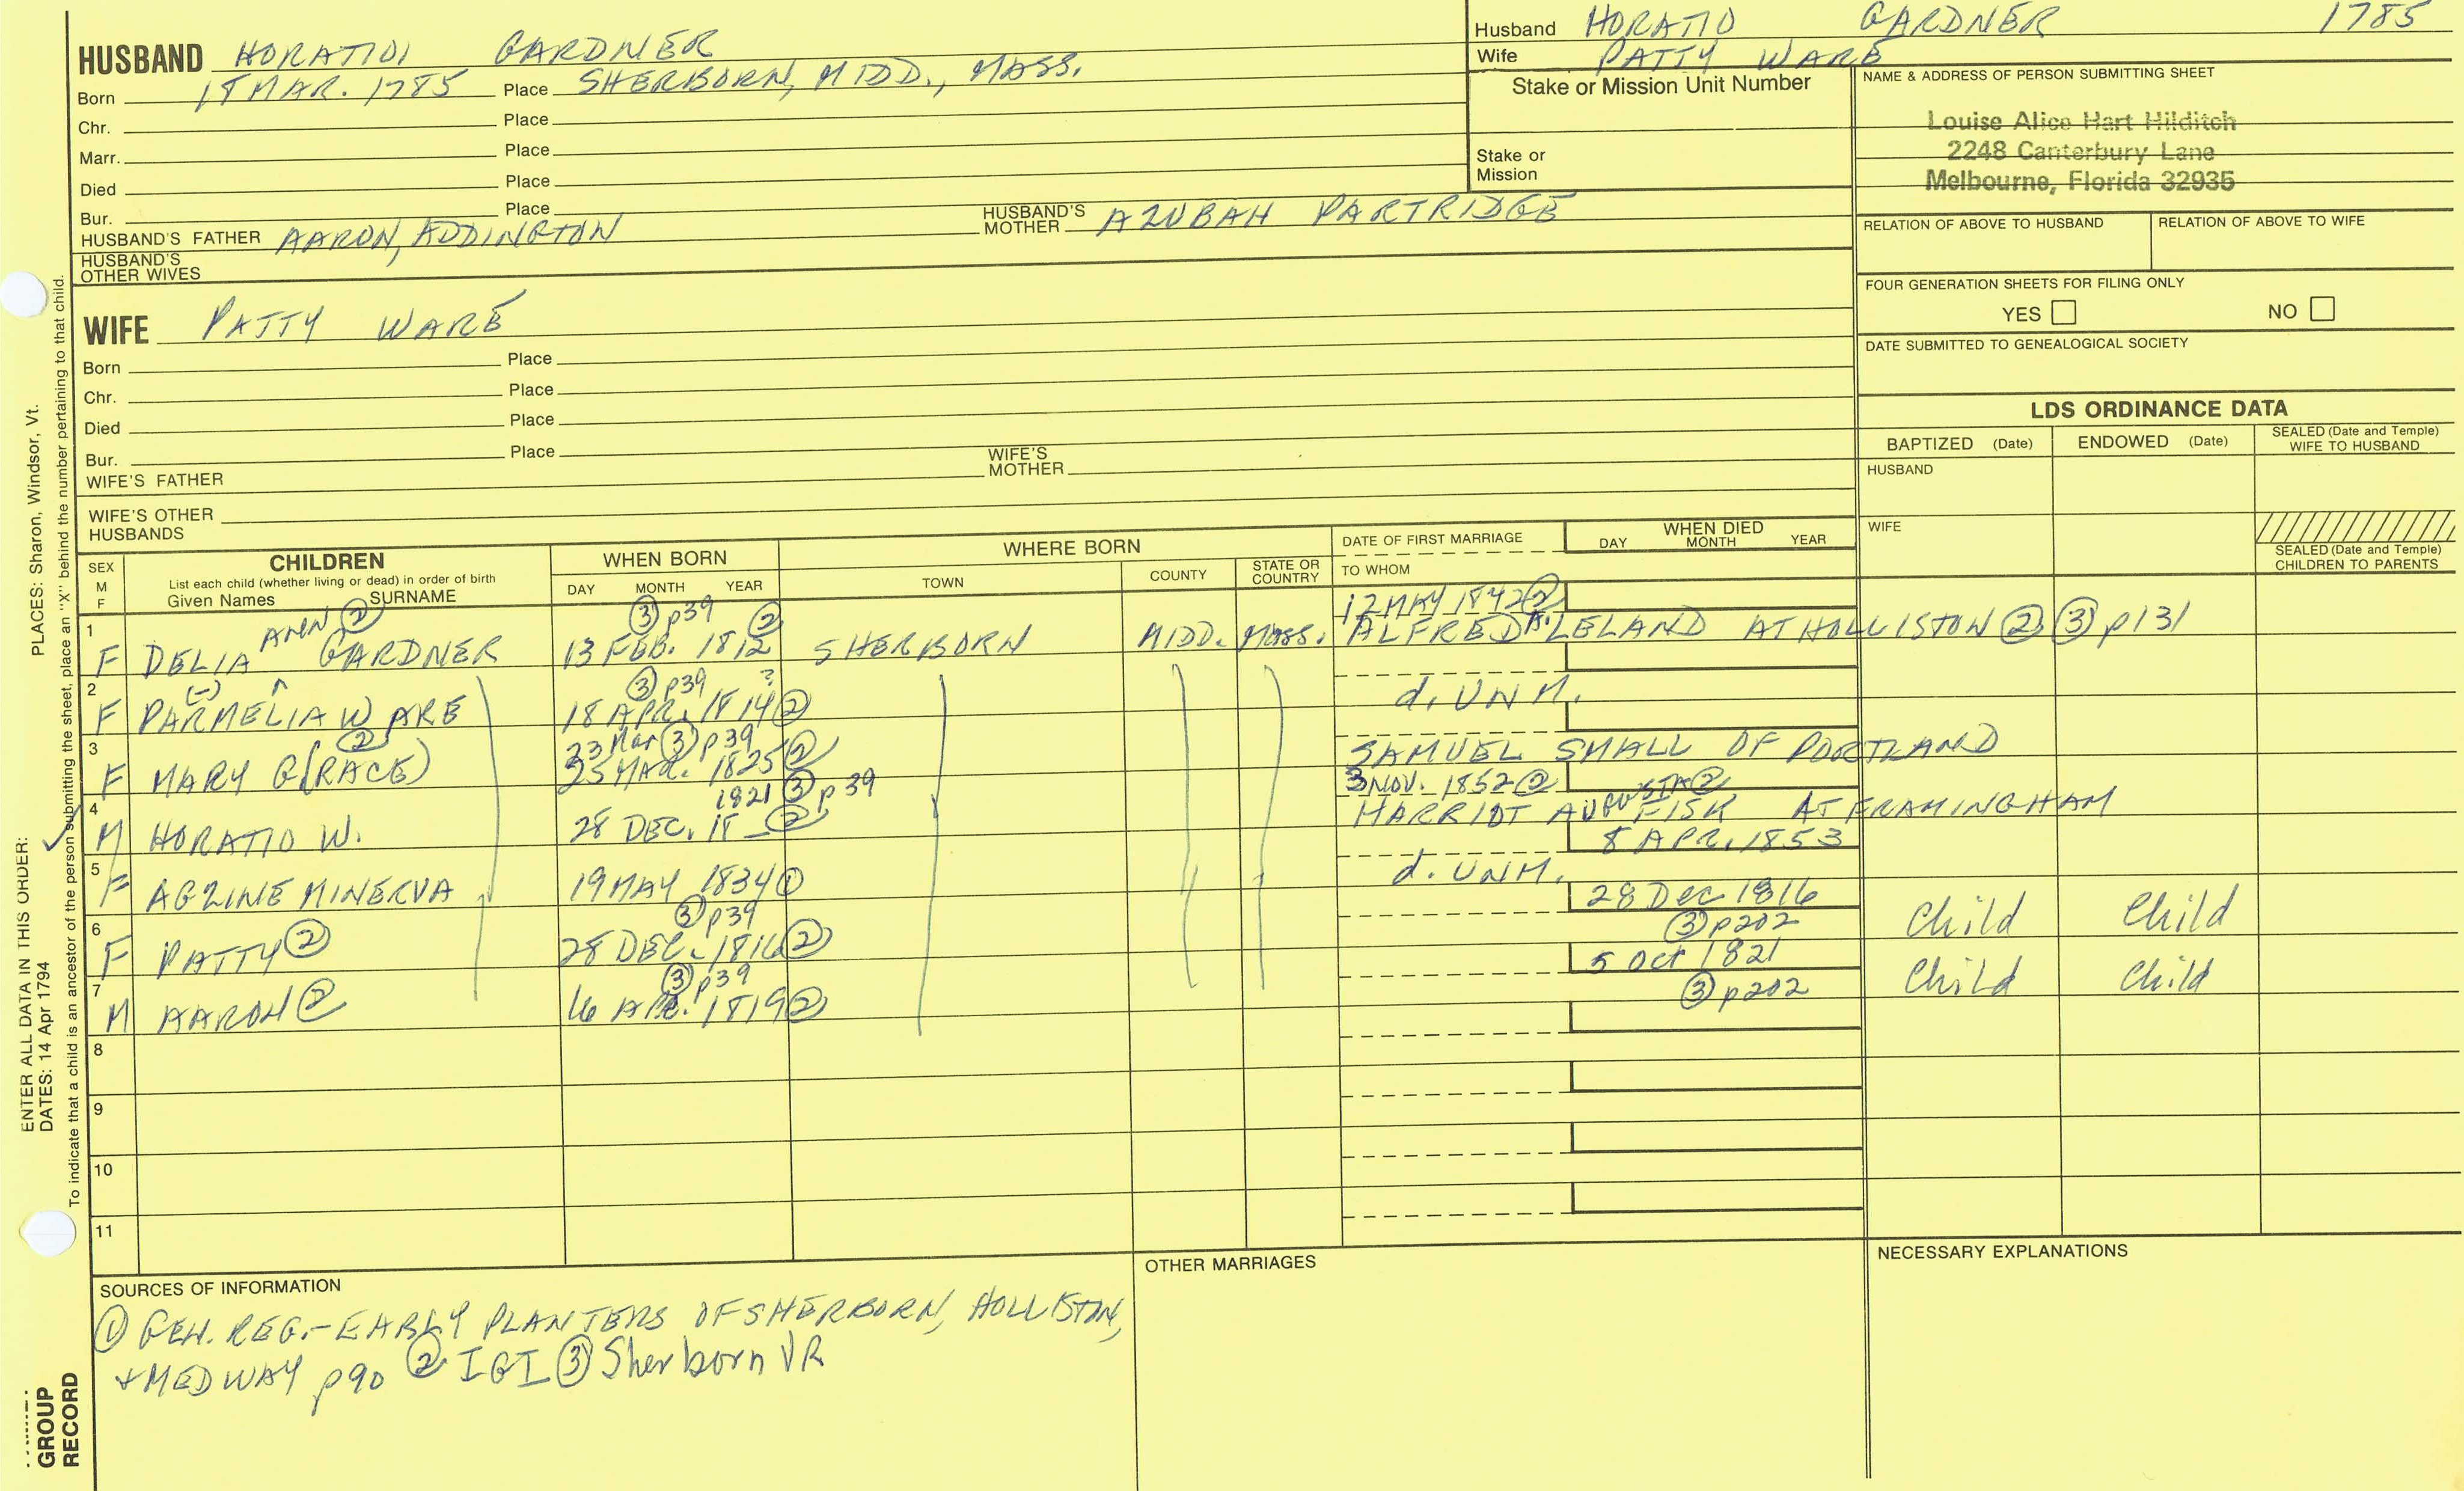 HUSBAND HORATIO GARDNER
Born 18 MAR. 1785 Place SHERBORN, MIDD., MASS.
Chr. Place
Marr. Place
Died Place
Bur. Place
HUSBAND'S FATHER AARON, ADDINGTON HUSBAND'S MOTHER AZUBAH PARTRIDGE
HUSBAND'S OTHER WIVES
Husband HORATIO GARDNER 1785
Wife PATTY WARE
Stake or Mission Unit Number
Stake or Mission
NAME & ADDRESS OF PERSON SUBMITTING SHEET
Louise Alice Hart Hilditch
2248 Canterbury Lane
Melbourne, Florida 32935
RELATION OF ABOVE TO HUSBAND RELATION OF ABOVE TO WIFE
FOUR GENERATION SHEETS FOR FILING ONLY
YES NO
DATE SUBMITTED TO GENEALOGICAL SOCIETY
WIFE PATTY WARE
Born Place
Chr. Place
Died Place
Bur. Place
WIFE'S FATHER WIFE'S MOTHER
WIFE'S OTHER HUSBANDS
LDS ORDINANCE DATA
BAPTIZED (Date) ENDOWED (Date) SEALED (Date and Temple) WIFE TO HUSBAND
HUSBAND
WIFE
SEALED (Date and Temple) CHILDREN TO PARENTS
SEX M F
CHILDREN
List each child (whether living or dead) in order of birth
Given Names SURNAME
WHEN BORN
DAY MONTH YEAR
WHERE BORN
TOWN COUNTY STATE OR COUNTRY
DATE OF FIRST MARRIAGE
TO WHOM
WHEN DIED
DAY MONTH YEAR
③ p39 12 MAY 1842②
1 F DELIA ANN② GARDNER 13 FEB. 1812② SHERBORN MIDD. MASS. ALFRED A. LELAND AT HOLLISTON ② ③ p131
③ p39 ?
2 F PARMELIA WARE (-) 18 APR. 1814② d. UNM.
23 Mar ③ p39
3 F MARY G(RACE)② 25 MAR. 1825② SAMUEL SMALL OF PORTLAND
1821 ③ p39 3 NOV. 1852②
4 M HORATIO W. 28 DEC. 18_② HARRIOT AUGUSTA② FISK AT FRAMINGHAM
8 APR. 1853
5 F AGZINE MINERVA 19 MAY 1834① d. UNM.
③ p39 28 Dec 1816
6 F PATTY② 28 DEC. 1816② ③ p202 Child Child
③ p39 5 Oct 1821
7 M AARON② 16 APR. 1819② ③ p202 Child Child
8
9
10
11
SOURCES OF INFORMATION
① GEN. REG.- EARLY PLANTERS OF SHERBORN, HOLLISTON,
+ MEDWAY p90 ② IGI ③ Sherborn VR
OTHER MARRIAGES
NECESSARY EXPLANATIONS
ENTER ALL DATA IN THIS ORDER:
PLACES: Sharon, Windsor, Vt.
DATES: 14 Apr 1794
To indicate that a child is an ancestor of the person submitting the sheet, place an "X" behind the number pertaining to that child.
GROUP
RECORD